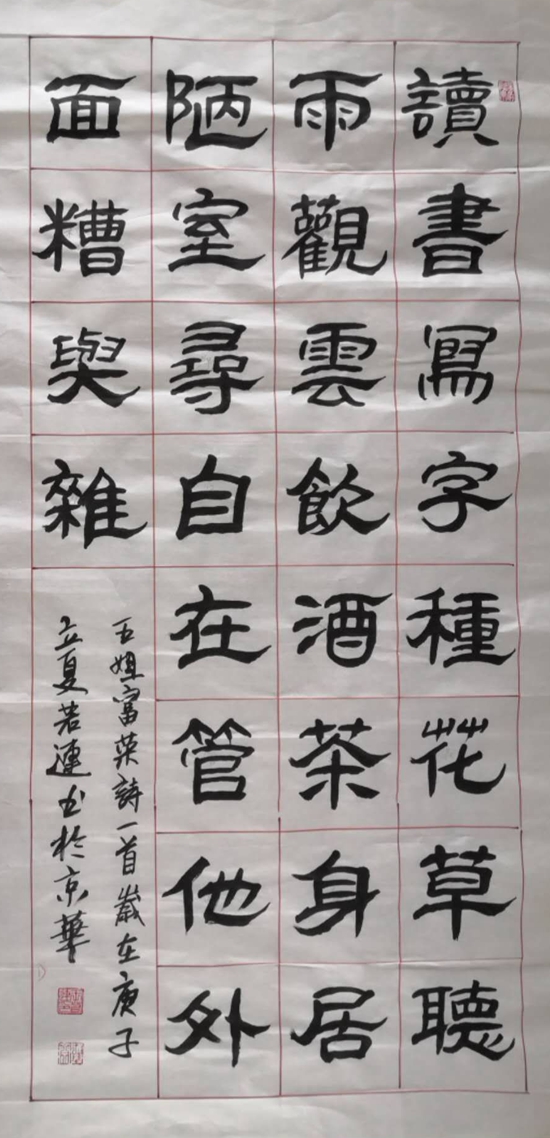 讀書寫字種花草聽
雨觀雲飲酒茶身居
陋室尋自在管他外
面糟與雜
五姐富榮詩一首歲在庚子
立夏若連书於京華